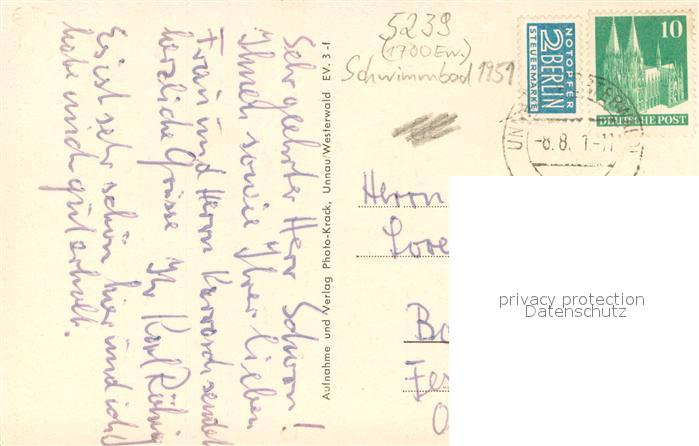 Sehr geehrter Herr Schorn!
Ihnen sowie Ihrer lieben
Frau und Herrn sendet
herzliche Grüsse Ihr Karl
Es ist sehr schön hier und ich
habe mich gut erholt.
Aufnahme und Verlag Photo-Krack, Unnau/Westerwald EV. 3-f
5239
(1700 Ew.)
Schwimmbad 1951
NOTOPFER
2 BERLIN
STEUERMARKE
10
DEUTSCHE POST
UN
-8.8. 1.-11
Herrn
Lore
privacy protection
Datenschutz